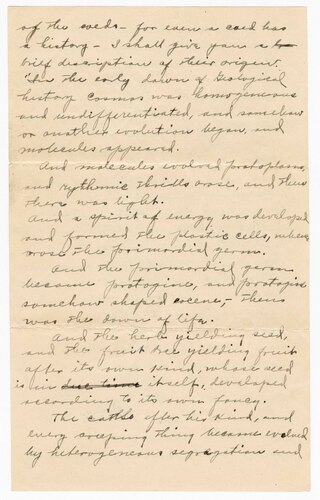 of the weds - for even a card has
a history - I shall give you a
brief discription of their origin.
"In the early dawn of Geological
history Cosmos was homogeneous
and undifferentiated, and somehow
or another evolution began, and
molecules appeared.
And molecules evolved protoplasm,
and rythmic thrills arose, and then
there was light.
And a spirit of energy was developed
and formed the plastic cells, whence
arose the primordial germ.
And the primordial germ
became protogine, and protogine
somehow shaped eocene,- then
was the dawn of life.
And the herb yielding seed,
and the fruit tree yielding fruit
after its own kind, whose seed
is in itself, developed
according to its own fancy.
The cattle after his kind, and
every creeping thing became evolved
by heterogenous segregation and